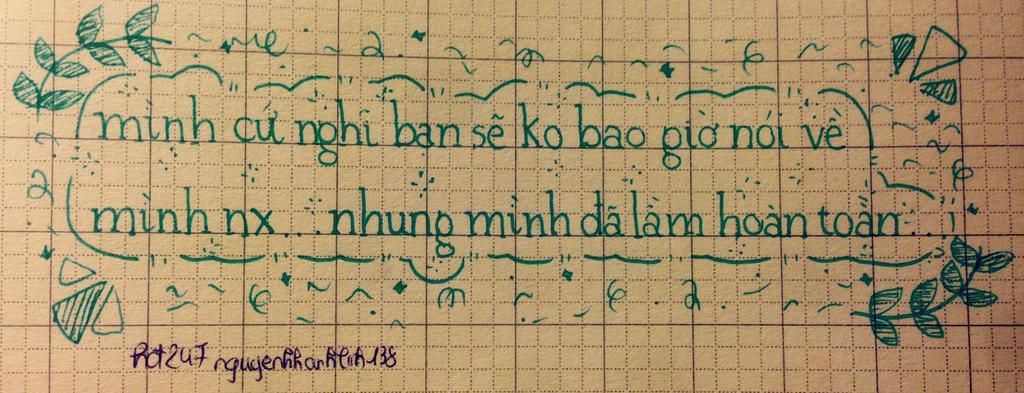 mình cứ nghĩ bạn sẽ ko bao giờ nói về
mình nx... nhưng mình đã lầm hoàn toàn...